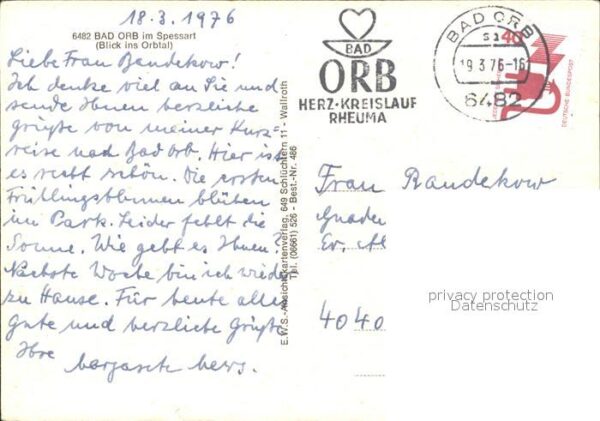 18.3.1976
6482 BAD ORB im Spessart
(Blick ins Orbtal)
Liebe Frau Bandekow!
Ich denke viel an Sie und
sende Ihnen herzliche
Grüße von meiner Kurz=
reise nach Bad Orb. Hier ist
es recht schön. Die ersten
Frühlingsblumen blühen
im Park. Leider fehlt die
Sonne. Wie geht es Ihnen?
Nächste Woche bin ich wieder
zu Hause. Für heute alles
Gute und herzliche Grüße
Ihre
E.W.S.-Ansichtkartenverlag, 649 Schlüchtern 11 - Wallroth
Tel. (06661) 526 - Best.-Nr. 486
BAD
ORB
HERZ·KREISLAUF
RHEUMA
BAD ORB
19.3.76-16
6482
40
DEUTSCHE BUNDESPOST
Frau Bandekow
Gnaden
Ev. Al
4040
privacy protection
Datenschutz